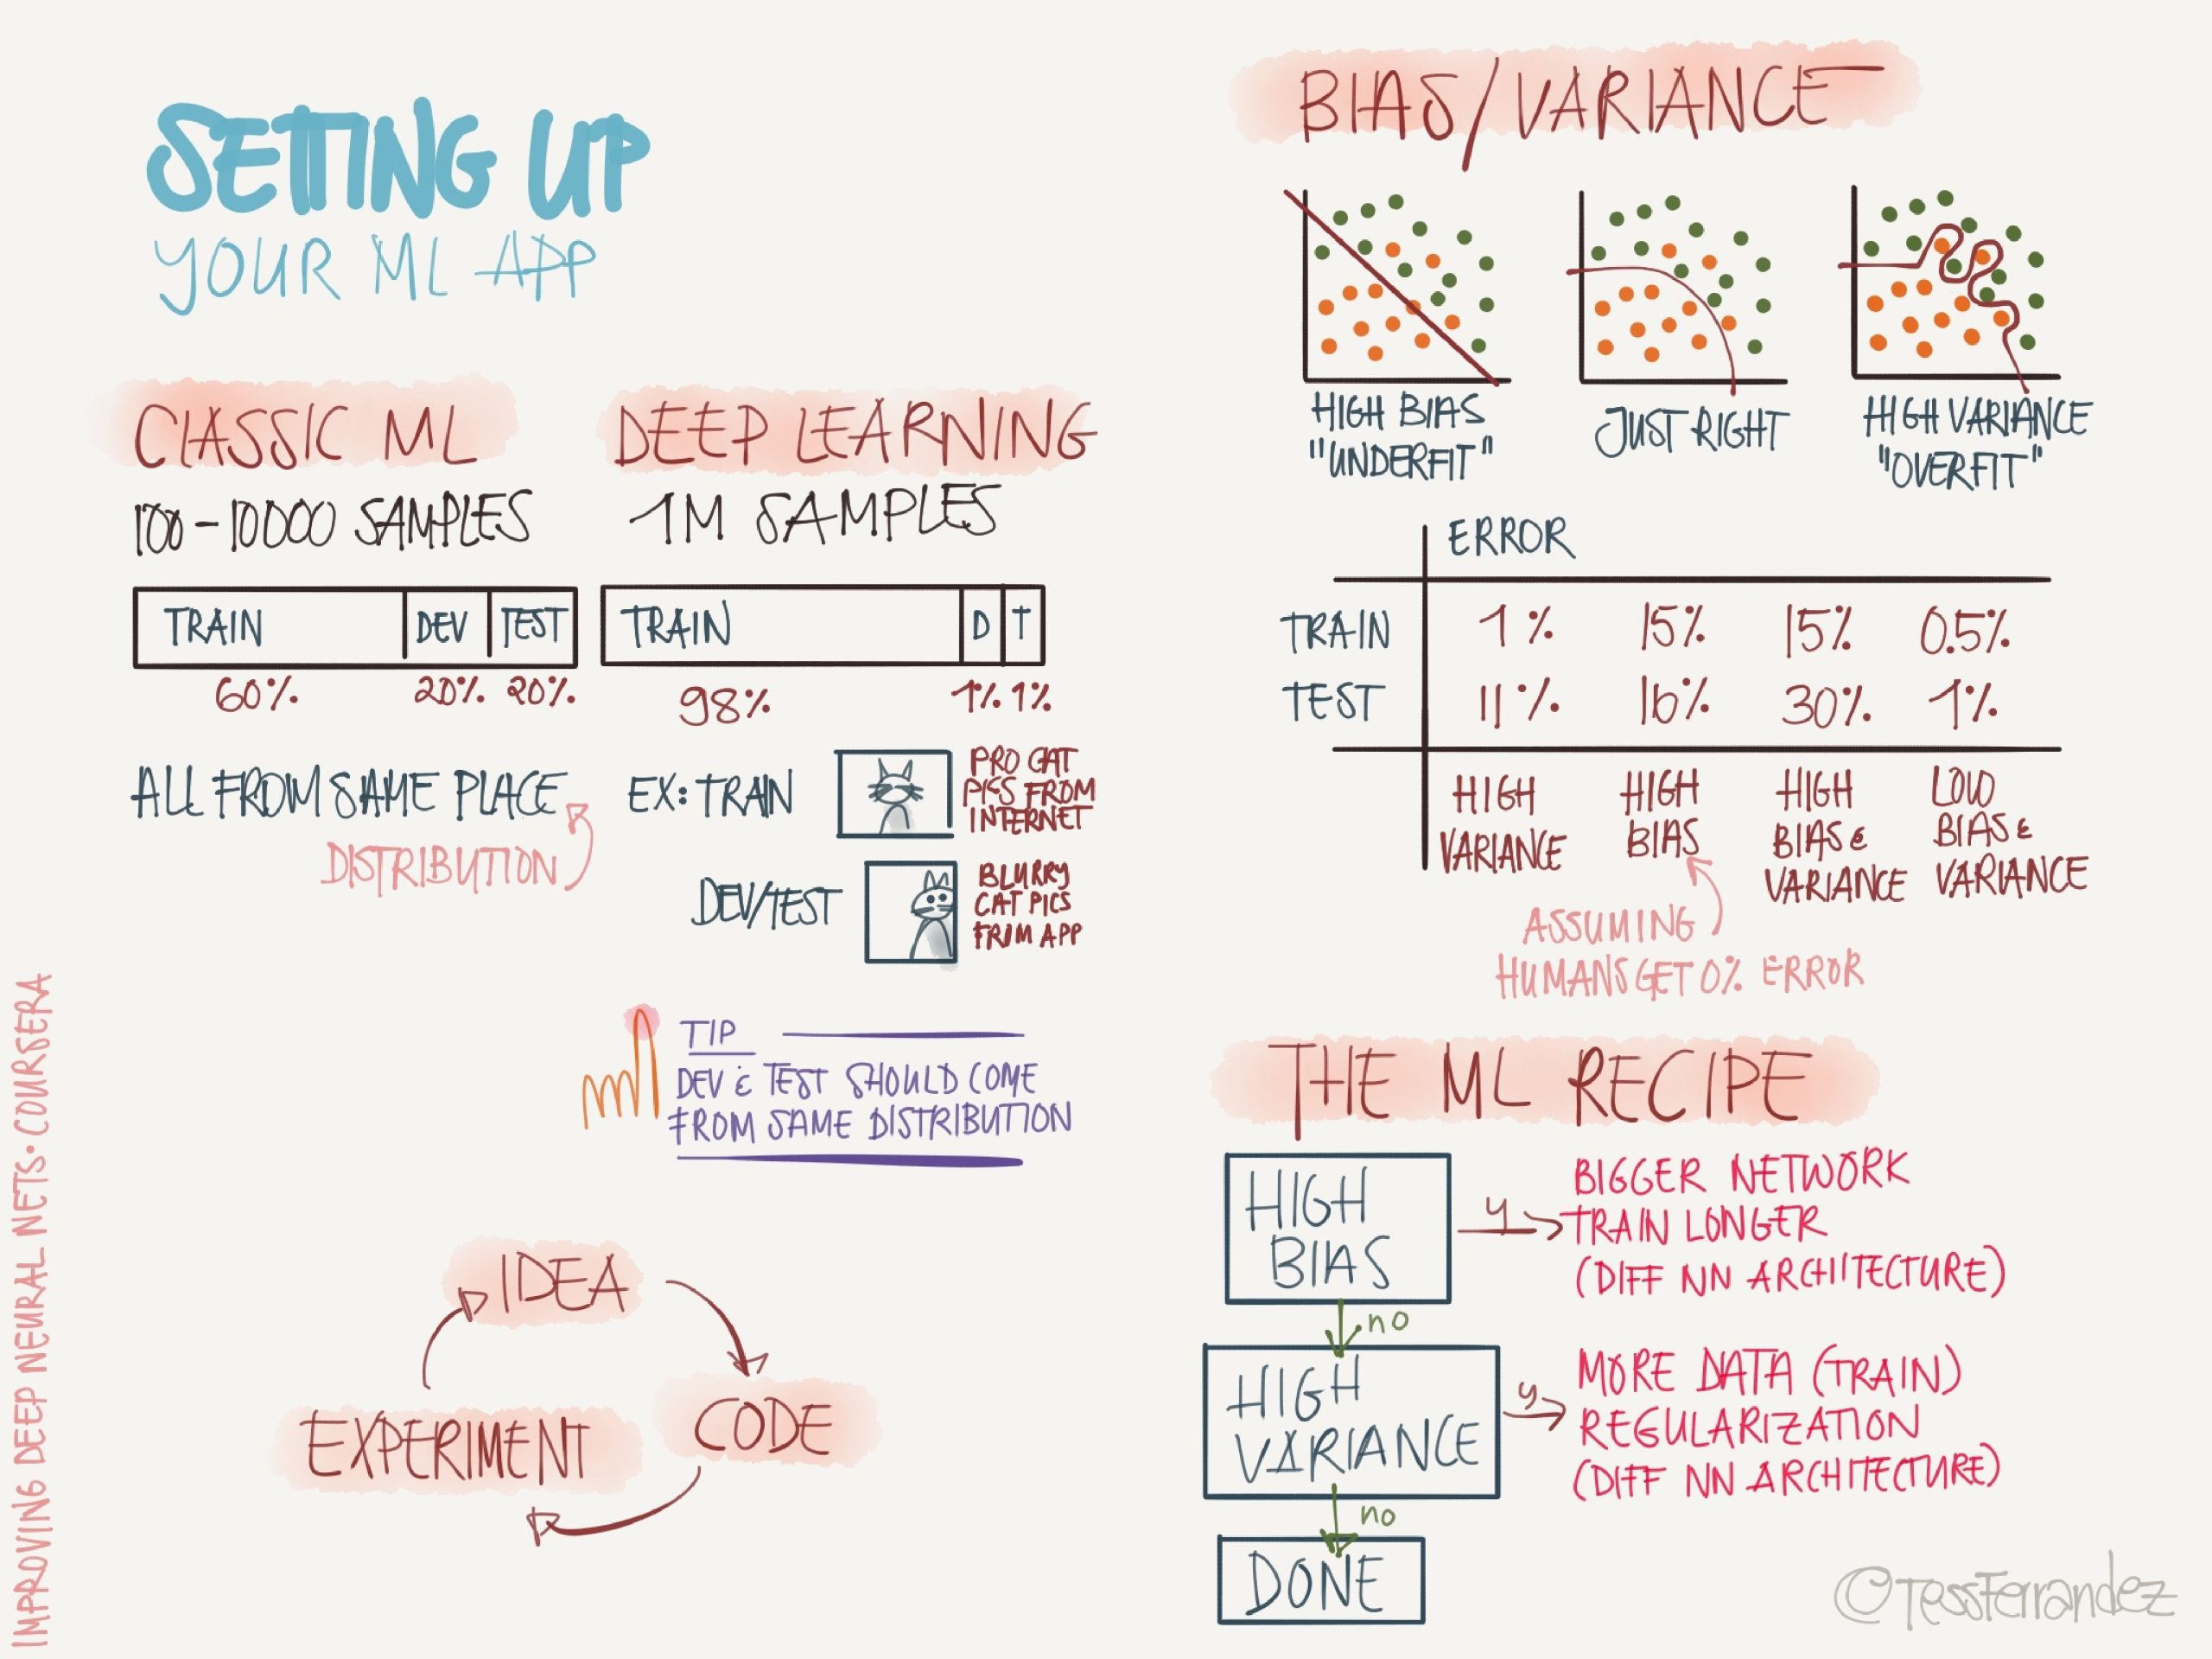 SETTING UP
YOUR ML APP
CLASSIC ML
100-10000 SAMPLES
TRAIN DEV TEST
60% 20% 20%
ALL FROM SAME PLACE
DISTRIBUTION
DEEP LEARNING
1M SAMPLES
TRAIN D T
98% 1% 1%
EX: TRAIN
PRO CAT
PICS FROM
INTERNET
DEV/TEST
BLURRY
CAT PICS
FROM APP
TIP
DEV & TEST SHOULD COME
FROM SAME DISTRIBUTION
IDEA
CODE
EXPERIMENT
BIAS/VARIANCE
HIGH BIAS
"UNDERFIT"
JUST RIGHT
HIGH VARIANCE
"OVERFIT"
ERROR
TRAIN 1% 15% 15% 0.5%
TEST 11% 16% 30% 1%
HIGH
VARIANCE
HIGH
BIAS
HIGH
BIAS &
VARIANCE
LOW
BIAS &
VARIANCE
ASSUMING
HUMANS GET 0% ERROR
THE ML RECIPE
HIGH
BIAS
y
BIGGER NETWORK
TRAIN LONGER
(DIFF NN ARCHITECTURE)
no
HIGH
VARIANCE
y
MORE DATA (TRAIN)
REGULARIZATION
(DIFF NN ARCHITECTURE)
no
DONE
IMPROVING DEEP NEURAL NETS • COURSERA
©TessFerrandez